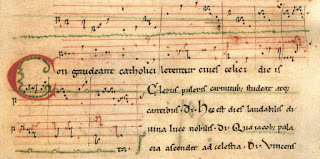 Congaudeant catholici letentur ciues celici die is
Clerus pulcris carminib; studeat atq;
cantibus. Di. Hec est dies laudabilis di
uina luce nobilis. Di. Qua iacob; pala
ta. cia ascendit ad celestia. Di. Vincens